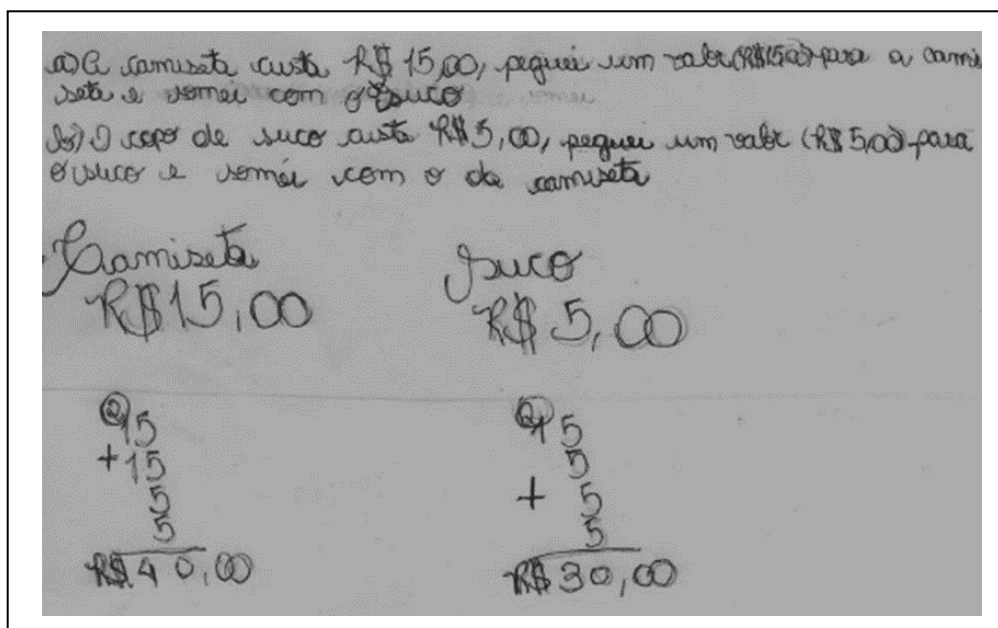 a) A camiseta custa R$ 15,00, peguei um valor (R$15,00) para a cami
seta e somei com o suco
b) O copo de suco custa R$ 5,00, peguei um valor (R$ 5,00) para
o suco e somei com o da camiseta
Camiseta Suco
R$15,00 R$ 5,00
2 15 2 15
+15 5
5 + 5
5 5
R$ 40,00 R$ 30,00